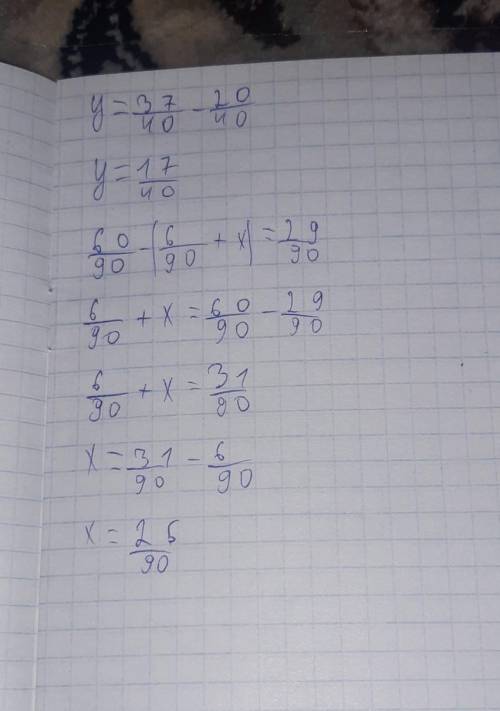 y = 37/40 - 20/40
y = 17/40
60/90 - (6/90 + x) = 29/90
6/90 + x = 60/90 - 29/90
6/90 + x = 31/90
x = 31/90 - 6/90
x = 25/90